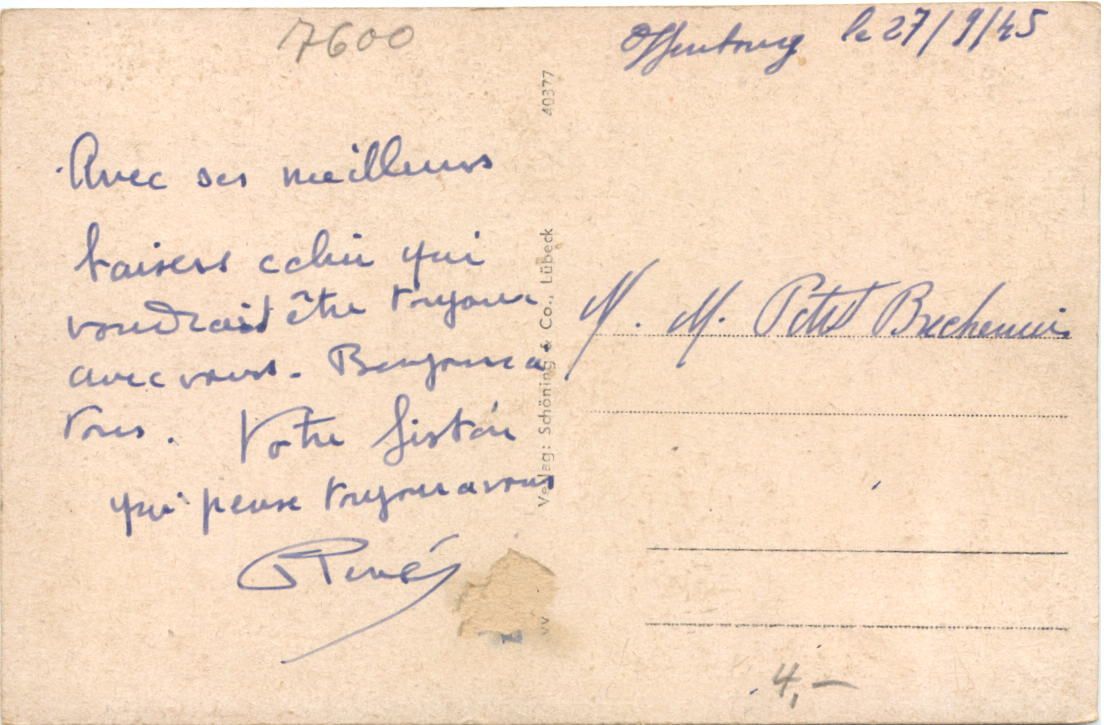 7600
Offenbourg le 27/9/45
Avec ses meilleurs
baisers celui qui
voudrait être toujours
avec vous. Bonjour a
tous. Votre fiston
qui pense toujours a vous
René
M. M. Petit
Verlag: Schöning & Co., Lübeck 40377
4,-